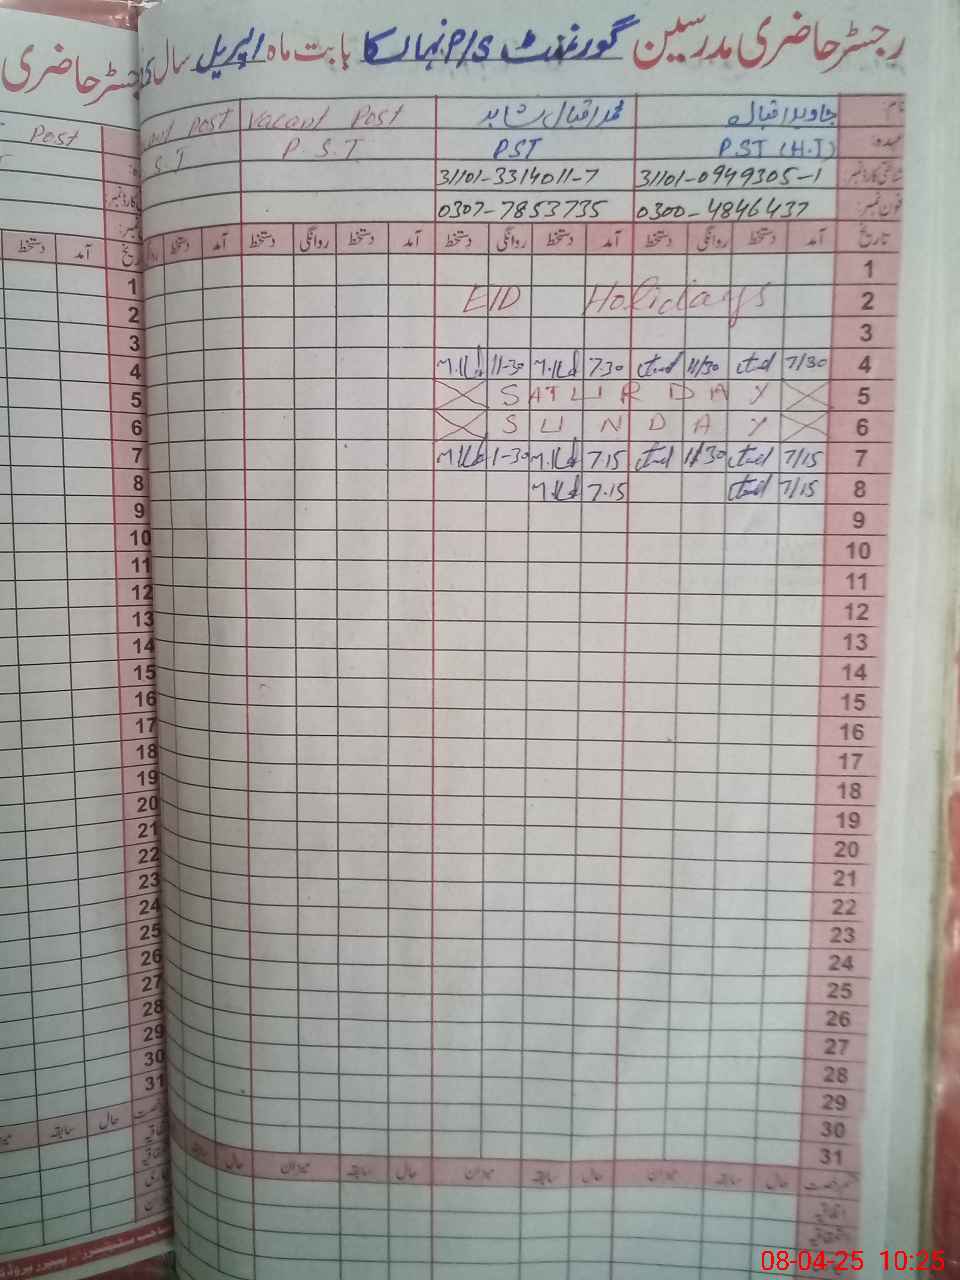 رجسٹر حاضری مدرسین گورنمنٹ P/S نہالکا بابت ماہ اپریل سال
نام: جاوید اقبال محمد اقبال شاہد Vacant Post Post
عہدہ: P.S.T (H.T) PST P.S.T S.T
شناختی کارڈ نمبر: 31101-0949305-1 31101-3314011-7
فون نمبر: 0300-4846437 0307-7853735
تاریخ آمد دستخط روانگی دستخط آمد دستخط روانگی دستخط آمد دستخط روانگی دستخط آمد دستخط
1
2 EID Holidays
3
4 7/30 11/30 7.30 11-30
5 SATURDAY
6 SUNDAY
7 7/15 11/30 7.15 1-30
8 7/15 7.15
9
10
11
12
13
14
15
16
17
18
19
20
21
22
23
24
25
26
27
28
29
30
31
حال سابقہ میزان حال سابقہ میزان حال سابقہ میزان حال سابقہ
حاضری
Post
تاریخ آمد دستخط
1
2
3
4
5
6
7
8
9
10
11
12
13
14
15
16
17
18
19
20
21
22
23
24
25
26
27
28
29
30
31
حال سابقہ
08-04-25 10:25